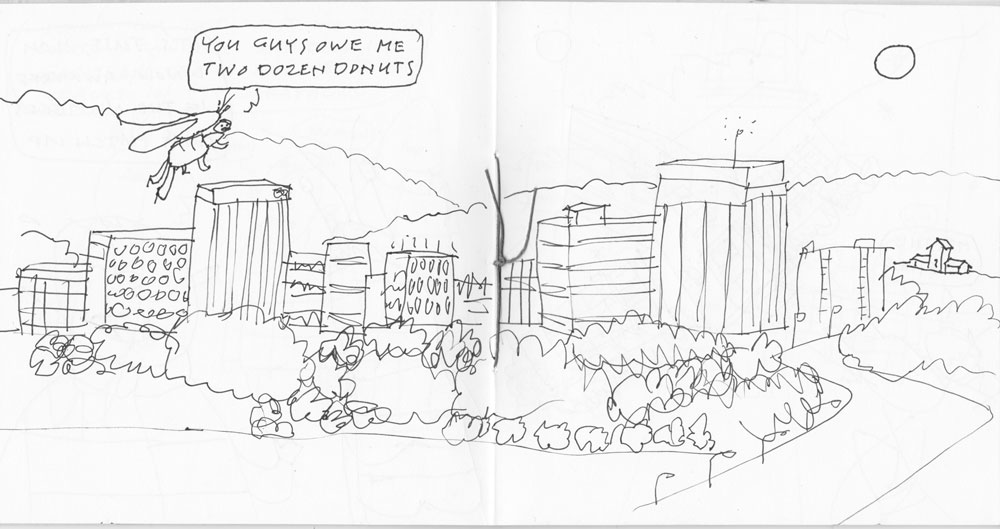 YOU GUYS OWE ME
TWO DOZEN DONUTS